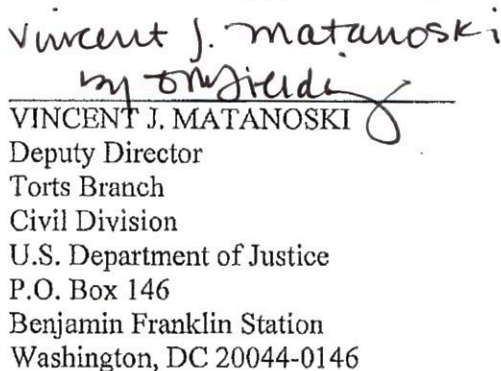 Vincent J. Matanoski
by
VINCENT J. MATANOSKI
Deputy Director
Torts Branch
Civil Division
U.S. Department of Justice
P.O. Box 146
Benjamin Franklin Station
Washington, DC 20044-0146